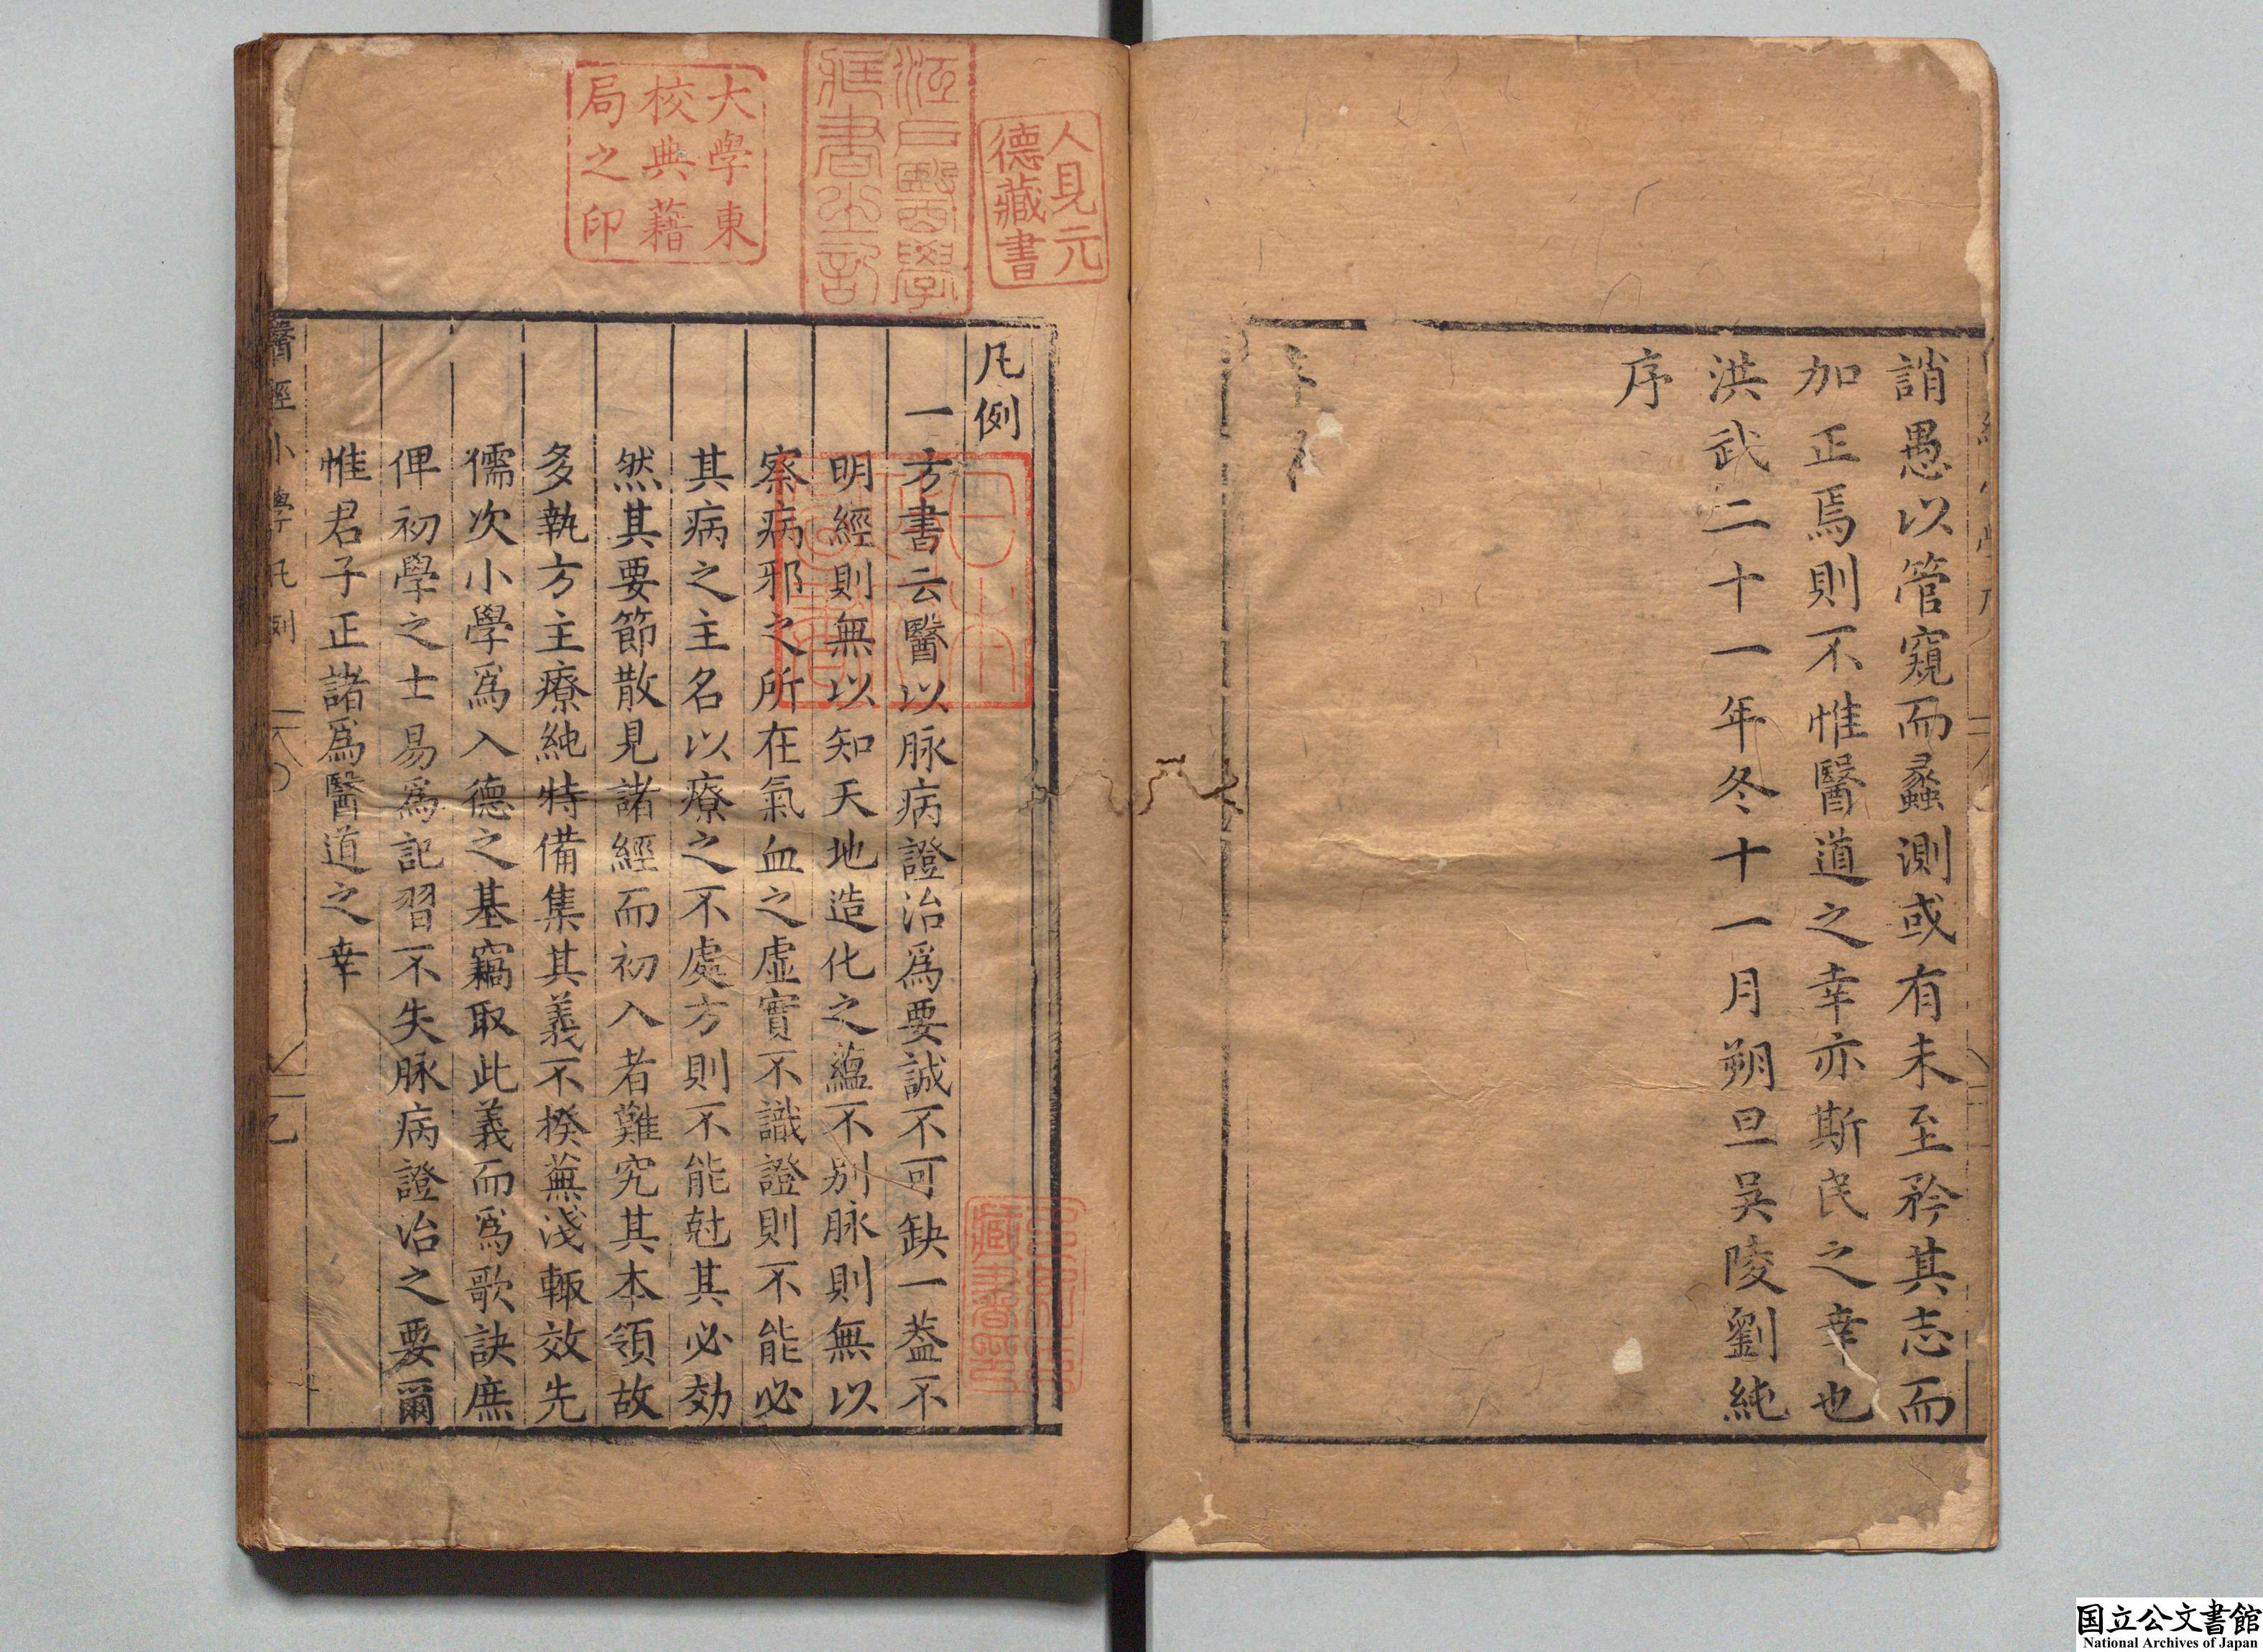 誚愚以管窺而蠡測或有未至矜其志而
加正焉則不惟醫道之幸亦斯民之幸也
洪武二十一年冬十一月朔旦吳陵劉純
序
人見元
德藏書
江戶醫學
藏書之記
大學東
校典藉
局之印
凡例
一方書云醫以脉病證治爲要誠不可缺一葢不
明經則無以知天地造化之蘊不别脉則無以
察病邪之所在氣血之虛實不識證則不能必
其病之主名以療之不處方則不能尅其必効
然其要節散見諸經而初入者難究其本領故
多執方主療純特備集其義不揆蕪淺輙效先
儒次小學爲入德之基竊取此義而爲歌訣庶
俾初學之士易爲記習不失脉病證治之要爾
惟君子正諸爲醫道之幸
醫經小學凡例
藏書印
国立公文書館
National Archives of Japan